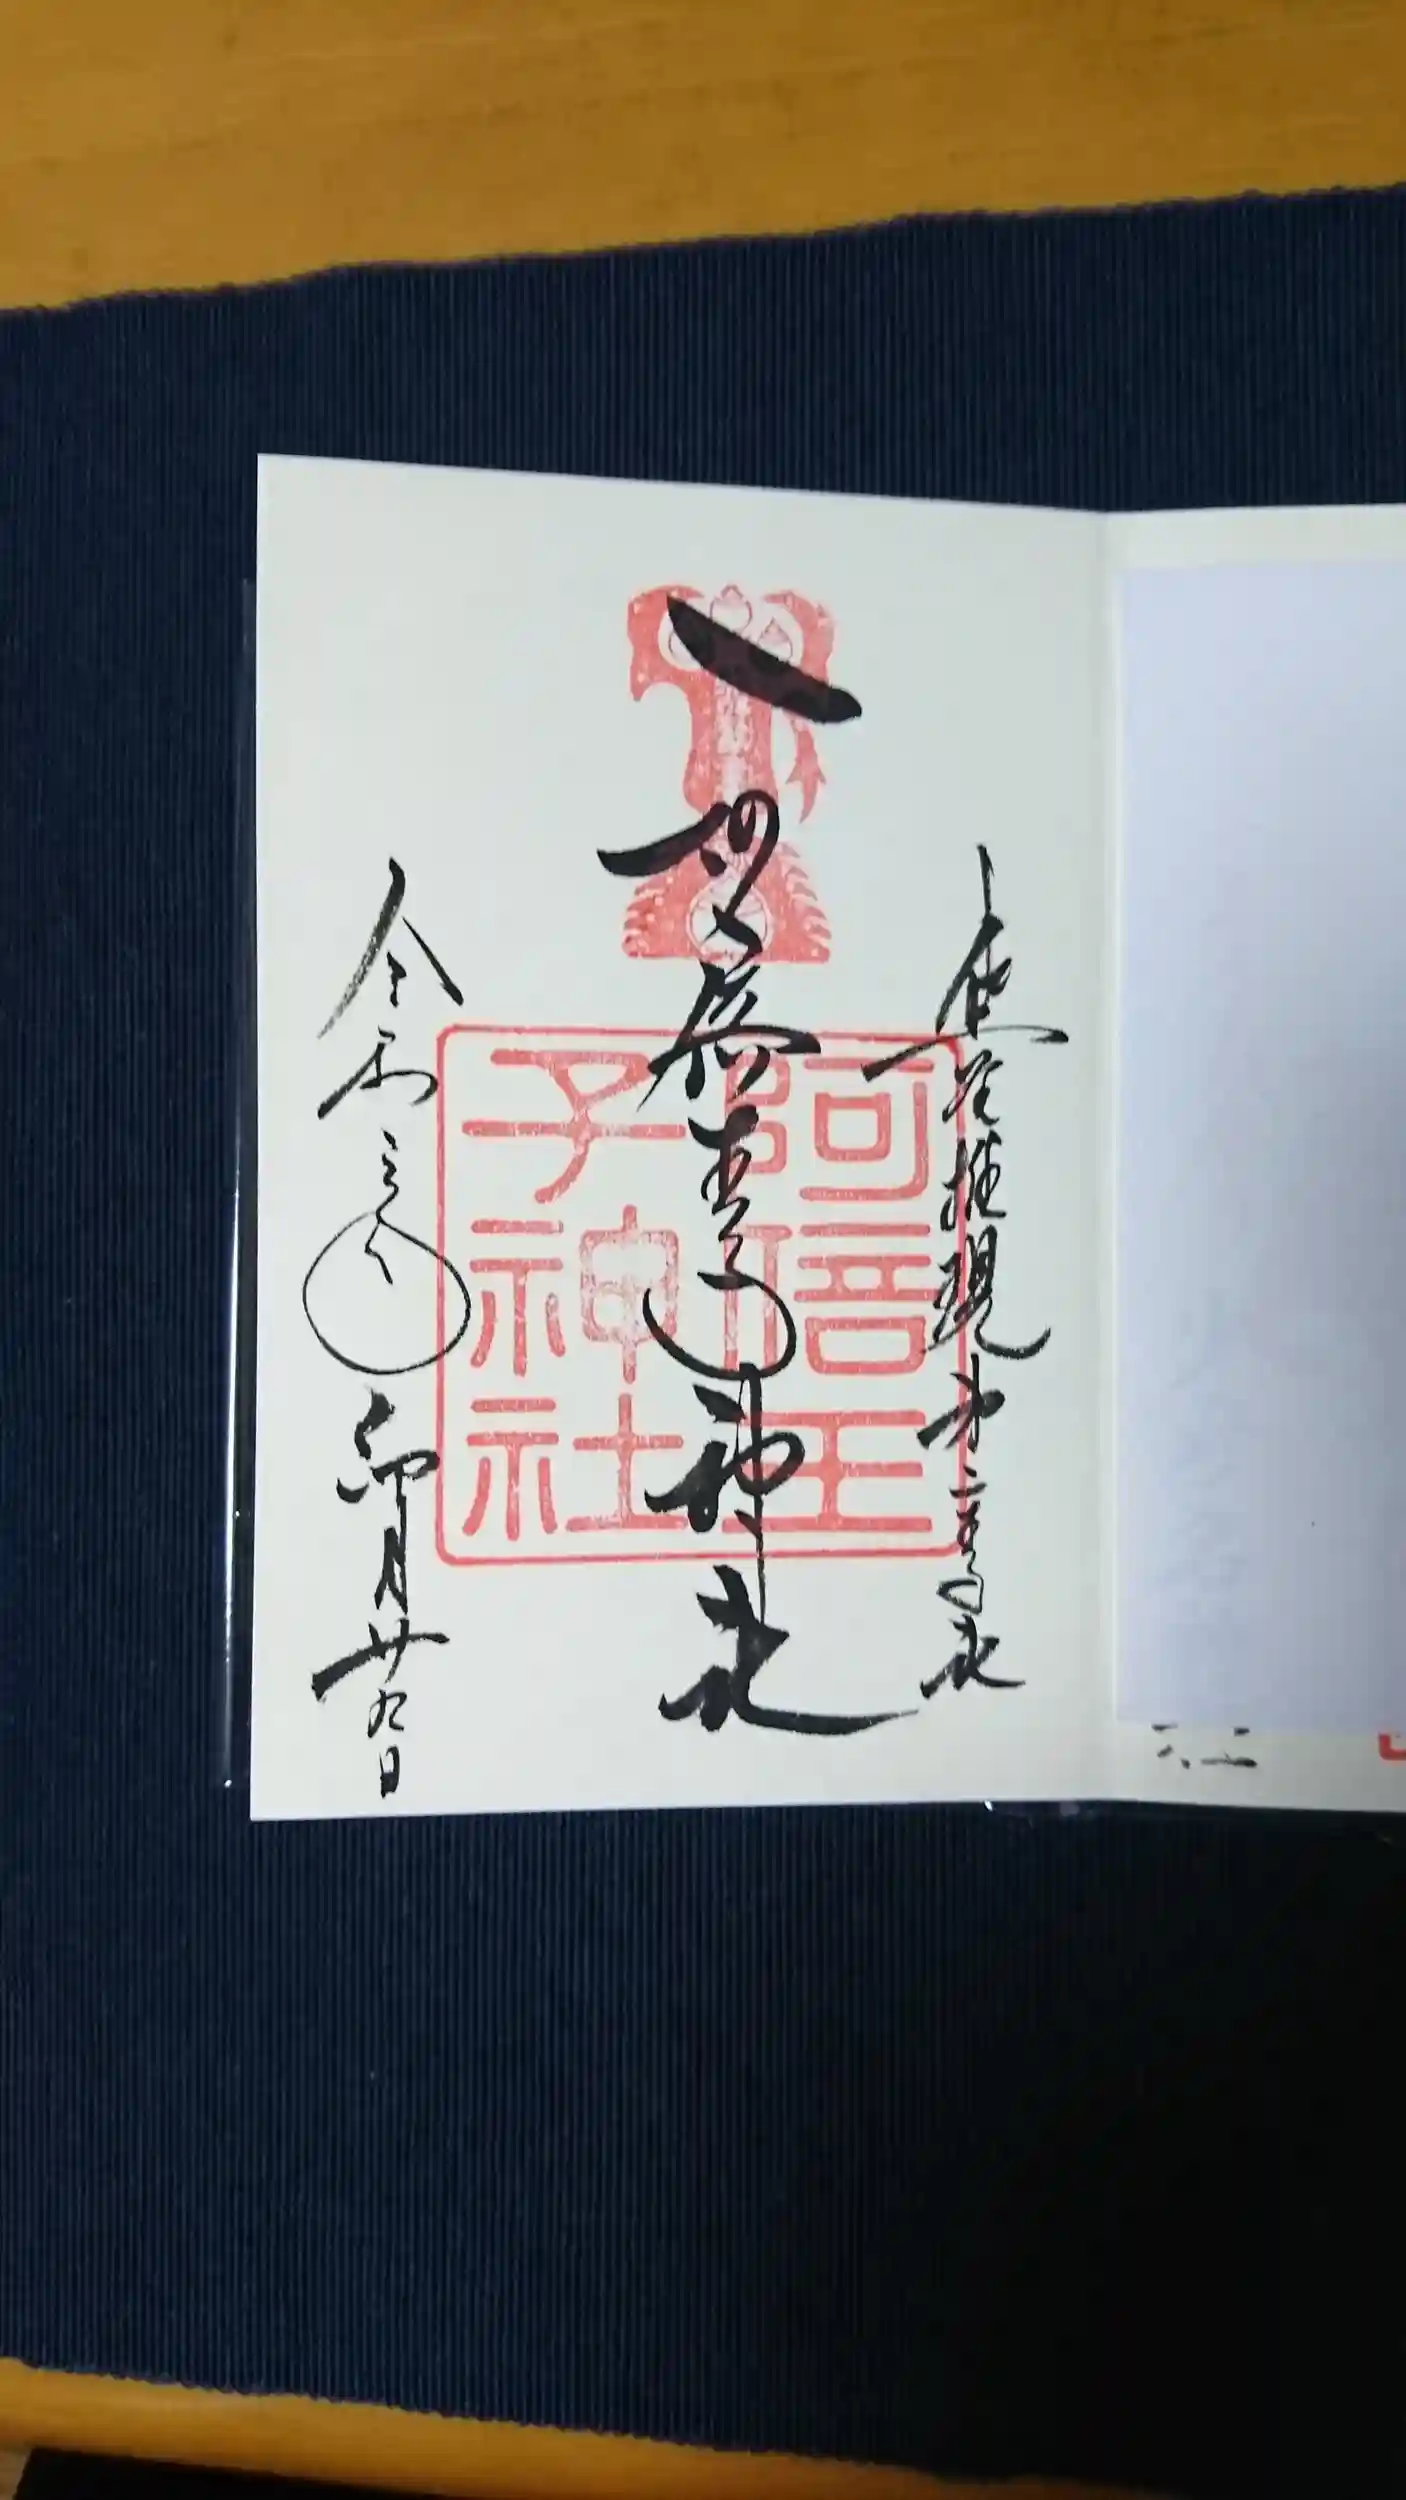 熊野権現第二王子社
阿倍王子神社
令和三年卯月廿九日
阿倍王
子神社